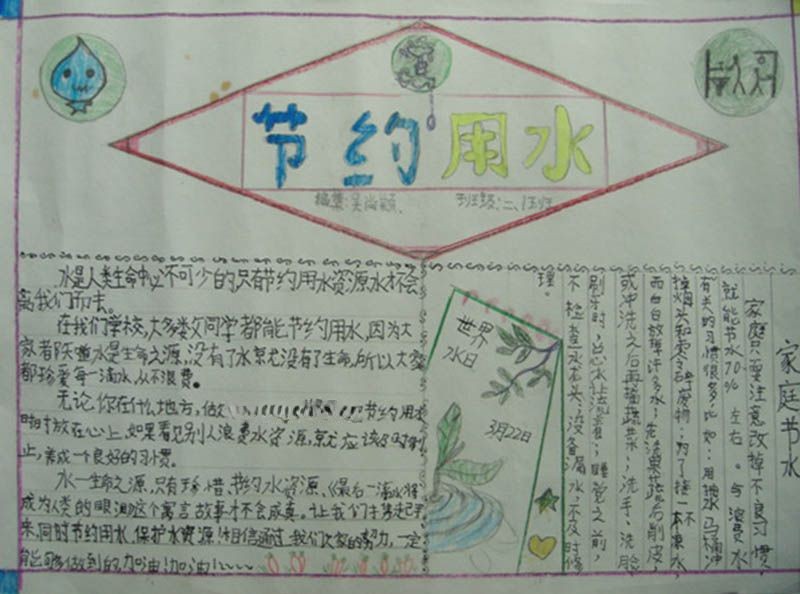 节约用水
编集:吴尚颖、 班级:二、1班
水是人类生命中必不可少的只有节约用水资源水才不会
离我们而去。
在我们学校,大多数文同学都能节约用水,因为大
家都懂水是生命之源,没有了水就没有了生命,所以大家
都珍爱每一滴水,从不浪费。
无论你在什么地方,做 把节约用水
时时放在心上,如果看见别人浪费水资源,就应该及时制
止,养成一个良好的习惯。
水—生命之源,只有珍惜、节约水资源,《最后一滴水将
成为人类的眼泪》这个寓言故事才不会成真。让我们
来,同时节约用水,保护水资源!相信通过我们大家的努力,一定
能够做到的,加油!加油!
世界
水日
3月22日
家庭节水
家庭只要注意改掉不良习惯,
就能节水70%左右。与浪费水
有关的习惯很多,比如:用抽水马桶冲
掉烟头和零碎废物;为了接一杯凉水,
而白白放掉许多水;先洗果蔬后削皮,
或冲洗之后再摘蔬菜;洗手、洗脸、
刷牙时,总让水流着;睡觉之前,
不检查水龙头;设备漏水,不及时修
理。